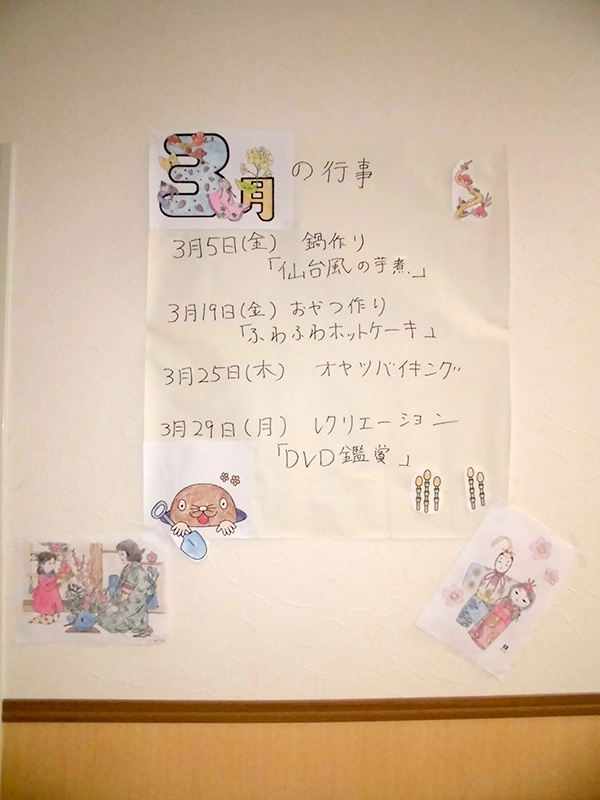 3月の行事
3月5日(金) 鍋作り
「仙台風の芋煮」
3月19日(金) おやつ作り
「ふわふわホットケーキ」
3月25日(木) オヤツバイキング
3月29日(月) レクリエーション
「DVD鑑賞」